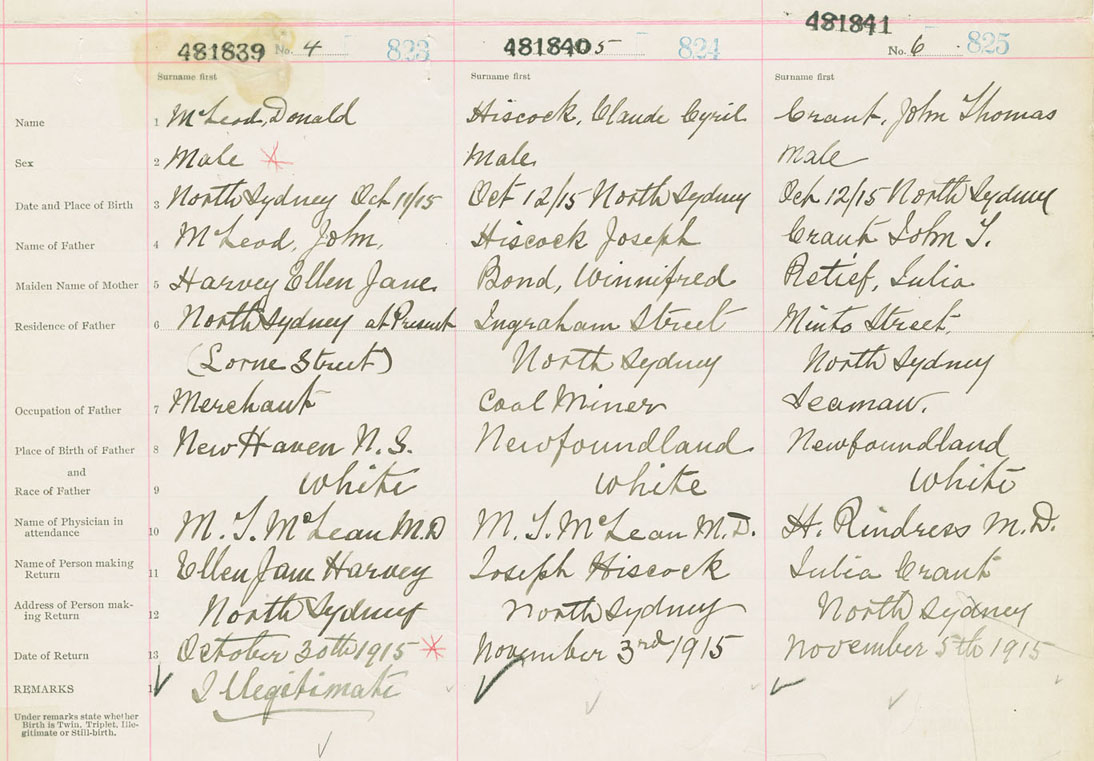 481839 No. 4 823 481840 5 824 481841 No. 6 825
Surname first Surname first Surname first
Name 1 McLeod, Donald Hiscock, Claude Cyril Grant, John Thomas
Sex 2 Male Male Male
Date and Place of Birth 3 North Sydney Oct 11/15 Oct 12/15 North Sydney Oct 12/15 North Sydney
Name of Father 4 McLeod, John, Hiscock Joseph Grant John T.
Maiden Name of Mother 5 Harvey Ellen Jane Bond, Winnifred Retief, Julia
Residence of Father 6 North Sydney at Present Ingraham Street Minto Street,
(Lorne Street) North Sydney North Sydney
Occupation of Father 7 Merchant Coal Miner Seaman.
Place of Birth of Father 8 New Haven N.S. Newfoundland Newfoundland
and
Race of Father 9 White White White
Name of Physician in
attendance 10 M. T. McLean M.D M. T. McLean M.D. H. Rindress M.D.
Name of Person making
Return 11 Ellen Jane Harvey Joseph Hiscock Julia Grant
Address of Person mak-
ing Return 12 North Sydney North Sydney North Sydney
Date of Return 13 October 30th 1915 November 3rd 1915 November 5th 1915
REMARKS 1 Illegitimate
Under remarks state whether
Birth is Twin, Triplet, Ille-
gitimate or Still-birth.